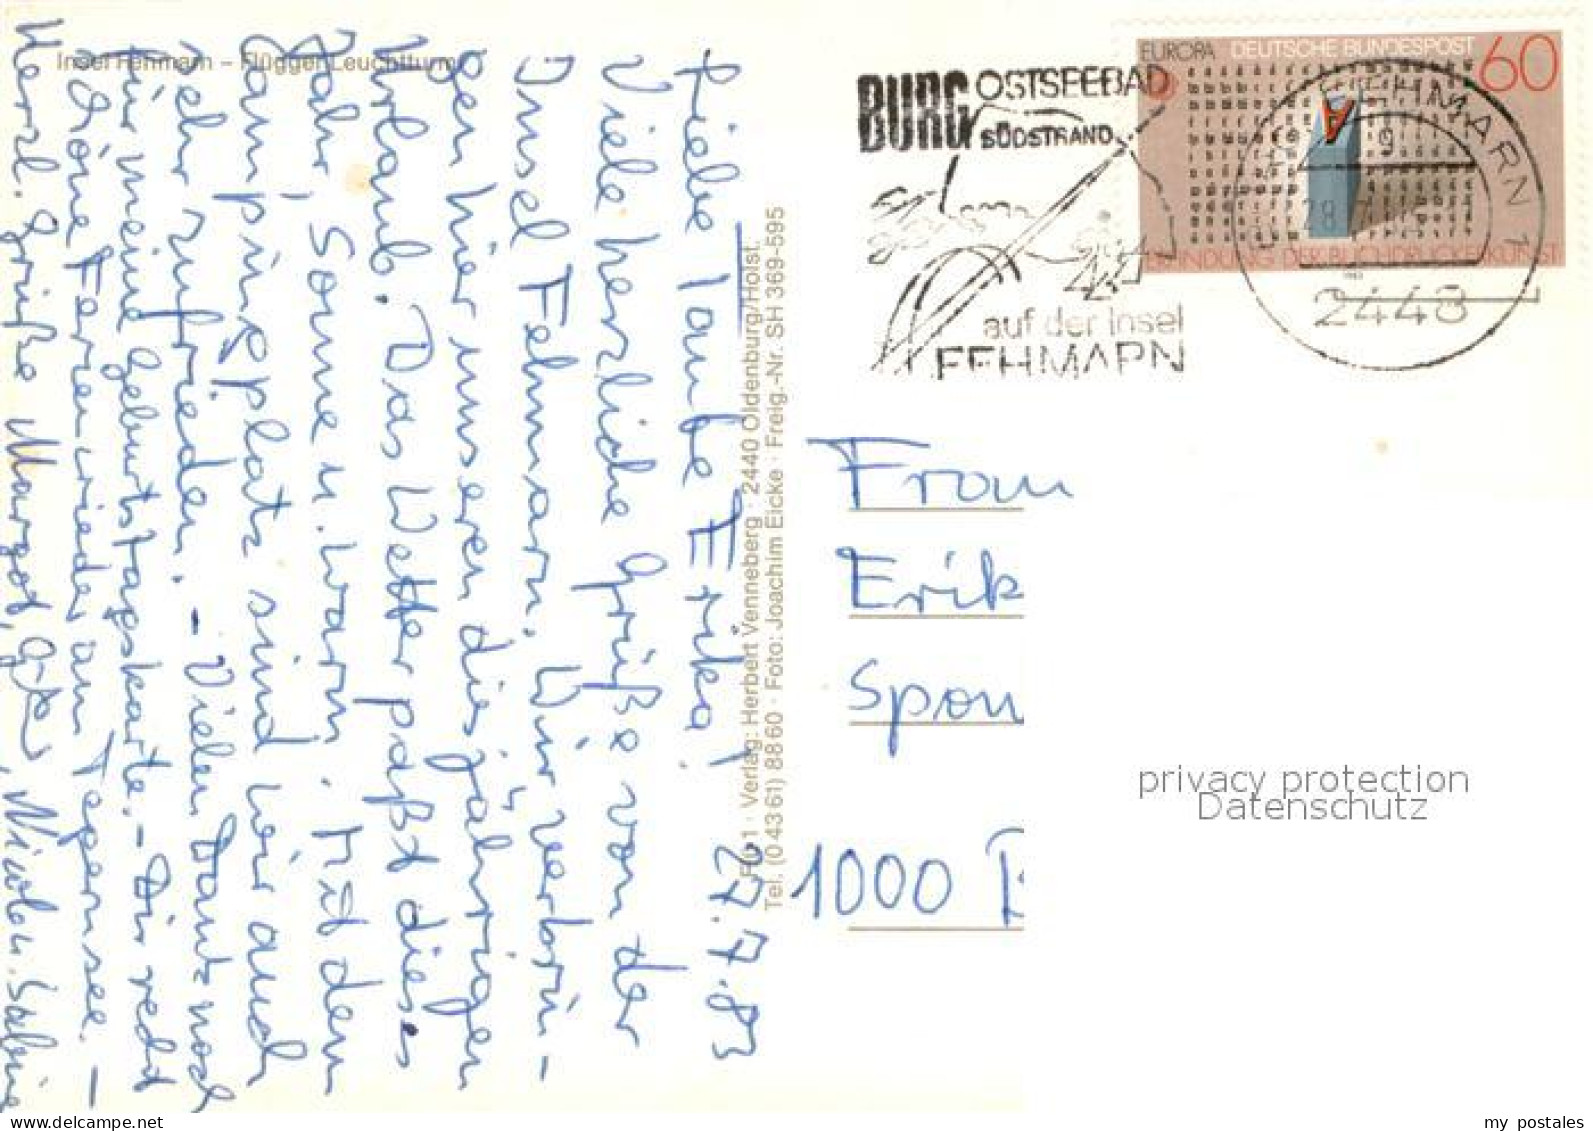 Insel Fehmarn – Flügger Leuchtturm
Liebe Tante Erika! 27.7.83
Viele herzliche Grüße von der
Insel Fehmarn. Wir verbrin-
gen hier unseren diesjährigen
Urlaub. Das Wetter paßt dieses
Jahr, Sonne u. warm. Mit dem
Campingplatz sind wir auch
sehr zufrieden. – Vielen Dank noch
für meine Geburtstagskarte. – Dir recht
schöne Ferien wieder am Tegernsee. –
Herzl. Grüße Margot, Nicole u. Sabine
Flü 1 · Verlag: Herbert Venneberg · 2440 Oldenburg/Holst.
Tel. (0 43 61) 88 60 · Foto: Joachim Eicke · Freig.-Nr. SH 369-595
BURG OSTSEEBAD
SÜDSTRAND
auf der Insel
FEHMARN
EUROPA DEUTSCHE BUNDESPOST 60
ERFINDUNG DER BUCHDRUCKERKUNST
FEHMARN 1
2448
Frau
Erik
Span
1000 B
privacy protection
Datenschutz
www.delcampe.net
my_postales